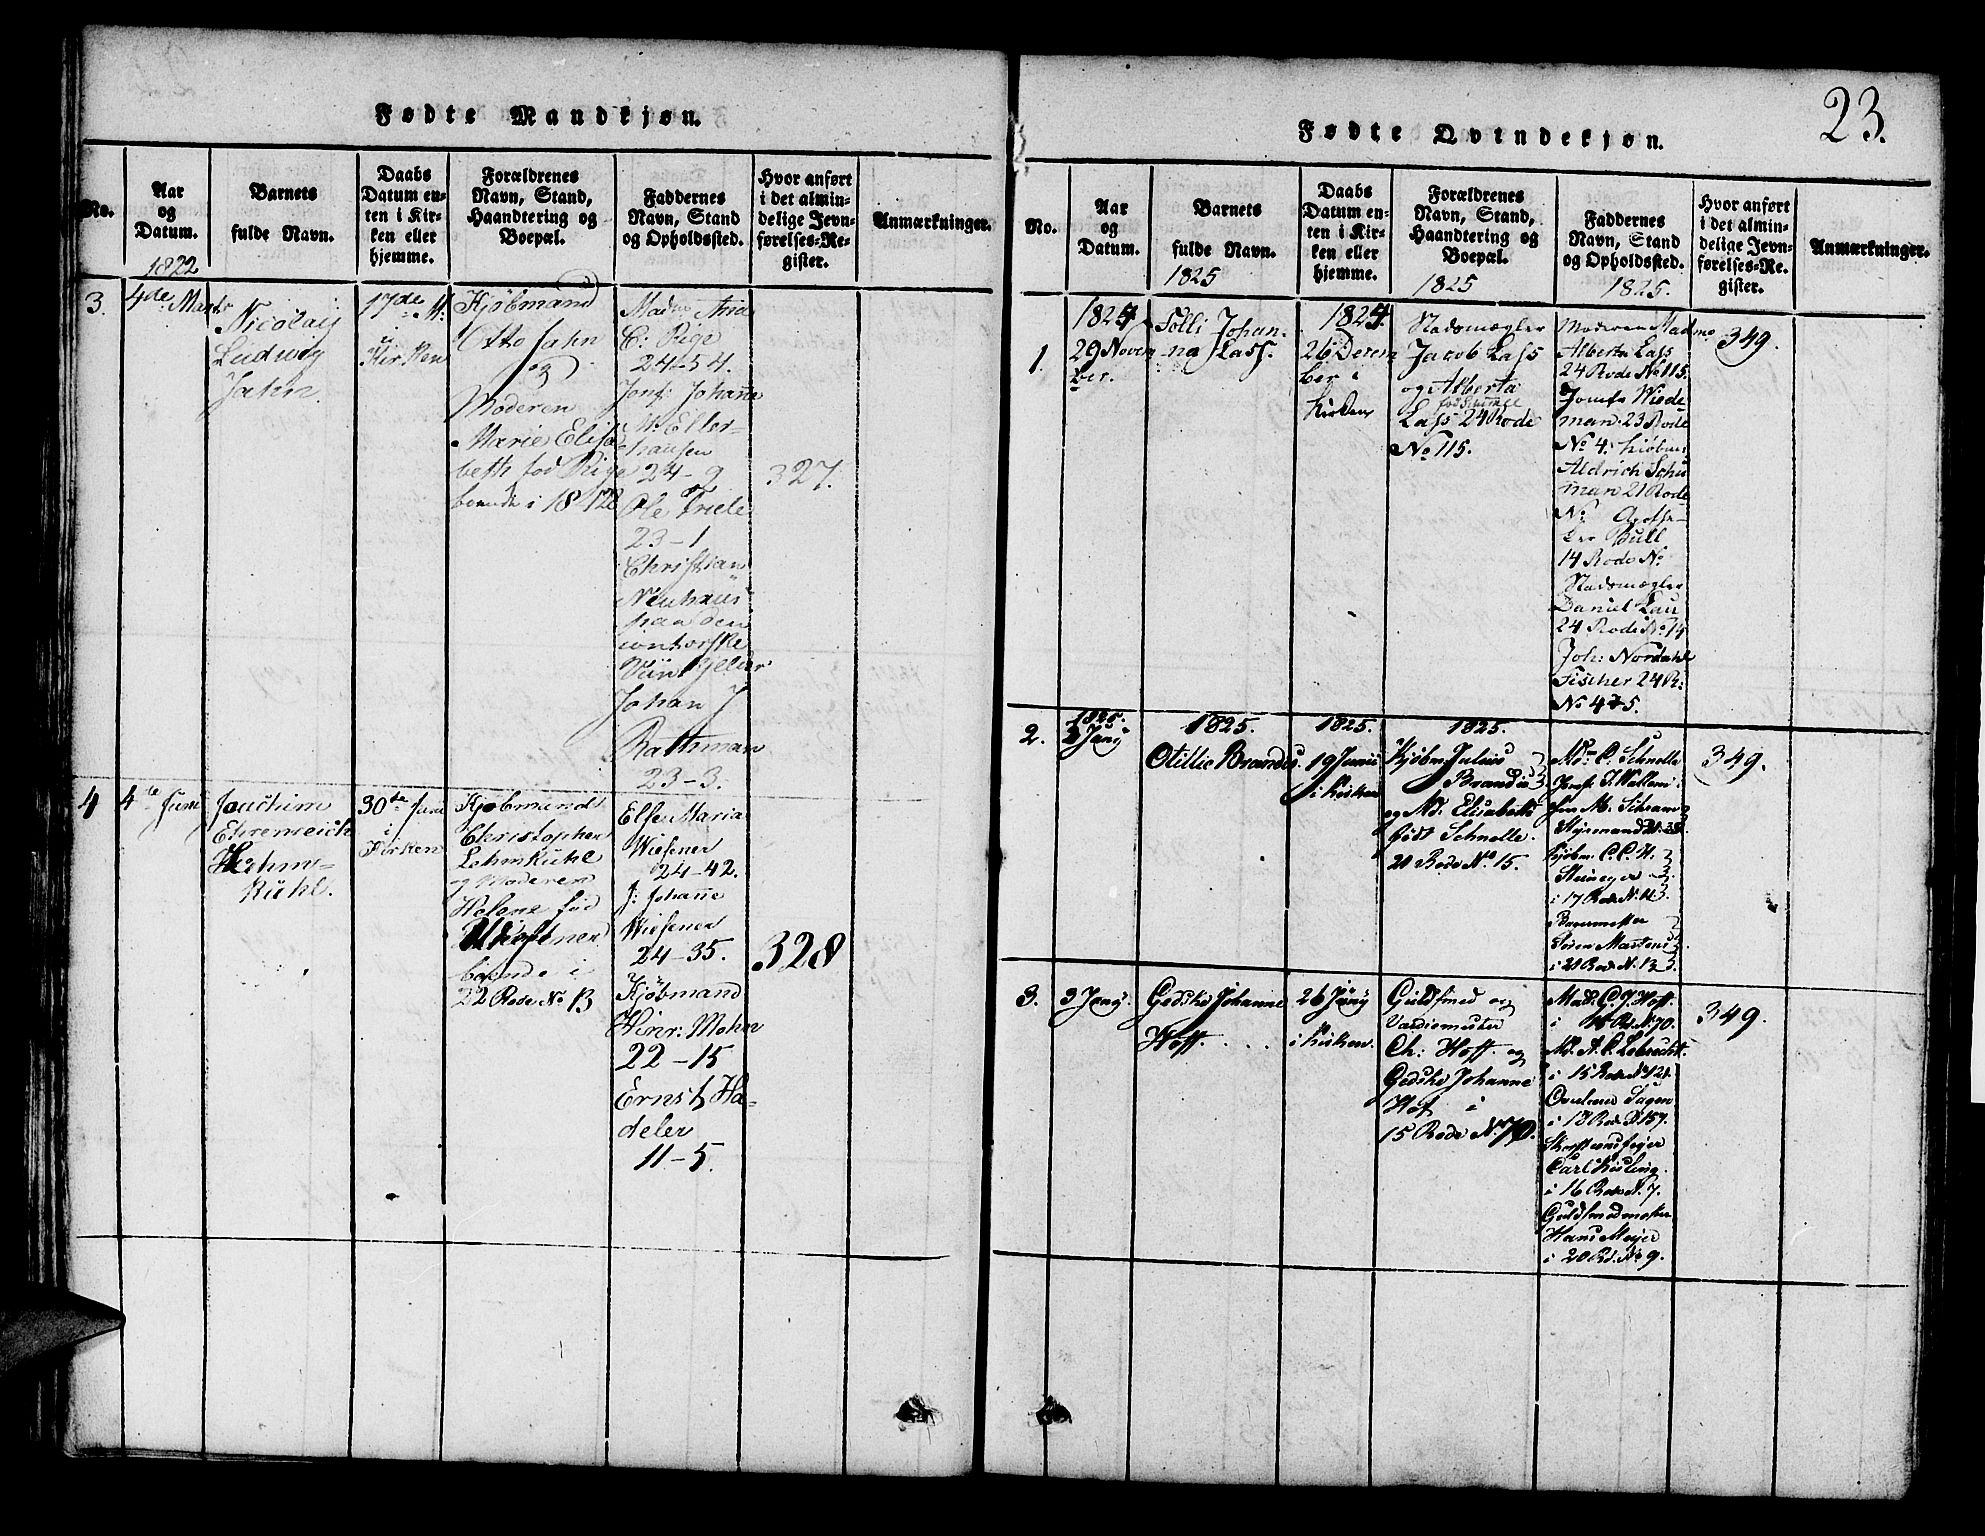 Fødte Mandkjøn.
No.
Aar
og
Datum.
1822
Barnets
fulde Navn.
Daabs
Datum en-
ten i Kir-
ken eller
hjemme.
Forældrenes
Navn, Stand,
Haandtering og
Boepæl.
Faddernes
Navn, Stand
og Opholdssted.
Hvor anført
i det almin-
delige Jevn-
førelses-Re-
gister.
Anmærkninger.
3.
4de Marts
Nicolaij
Ludwig
Jahn.
17de M:
i
Kirken
Kjøbmand
Otto Jahn
og
Moderen
Marie Elisa
beth fød Rige
boende i 18-128
Madme Ane
C: Rige
24-54.
Jomf: Johanne
M: Eller-
hausen
24-9
Ole Friele
23-1
Christian
Neuhaus
paa den
contorske
Viin Kjelder
Johan J
Rathman
23-3.
327.
4
4de Juni
Joachim
Ehrenreich
Lehm-
Kühl.
30te Juni
i
Kirken
Kjøbmand
Christopher
Lehmkühl
og Moderen
Helene fød
Wiesener
boende i
22 Rode No 13
Else Maria
Wiesener
24-42.
J: Johanne
Wiesener
24-35.
Kjøbmand
Hinr: Mohn
22-15
Ernst Ha-
deler
11-5.
328
23.
Fødte Qvindekjøn.
No.
Aar
og
Datum.
Barnets
fulde Navn.
1825
Daabs
Datum en-
ten i Kir-
ken eller
hjemme.
Forældrenes
Navn, Stand,
Haandtering og
Boepæl.
1825
Faddernes
Navn, Stand
og Opholdssted.
1825.
Hvor anført
i det almin-
delige Jevn-
førelses-Re-
gister.
Anmærkninger.
1.
1824
29 Novem
ber.
Tolli Johan-
na Lass.
1824.
26 Decem
ber i
Kirken
Stadsmægler
Jacob Lass
og Alberta
Lass 24 Rode
No 115.
Moderen Madme
Alberta Lass
24 Rode No 115.
Jomfr Wiede
man 23 Rode
No 4. kjøbm:
Aldrich Schu
man 21 Rode
No Apothe-
ker Bull
14 Rode No
Stadsmægler
Daniel Lau
24 Rode No 14
Joh: Nordahl
Fischer 24 R:
No 45.
349.
2.
1825.
2 Janij
1825.
Otillie Brandis.
1825.
19 Junii
i Kirken
1825.
Kjøbm: Julius
Brandis
og Md. Elisabeth
født Schnelle.
21 Rode No 15.
Md. C. Schnelle
Kjøbm: C. C. H.
i 17 Rode N. 14.
Søren Martens
i 21 Rode N. 13
349.
3.
3 Janij.
Gedske Johanne
Hoff.
26 Junij
i Kirken.
Guldsmed og
Ch: Hoff. og
Gedske Johanne
Hof i
15 Rode No 70.
Mad: C. J. Hoff.
i 15 Rd. N. 70.
Md. A. C. Lebrecht.
i 15 Rode No 121.
i 13 Rode N 157.
Carl Kisling.
i 16 Rode N. 7.
Guldsmedmester
Hans Meijer
i 20 Rd. No 9.
349.